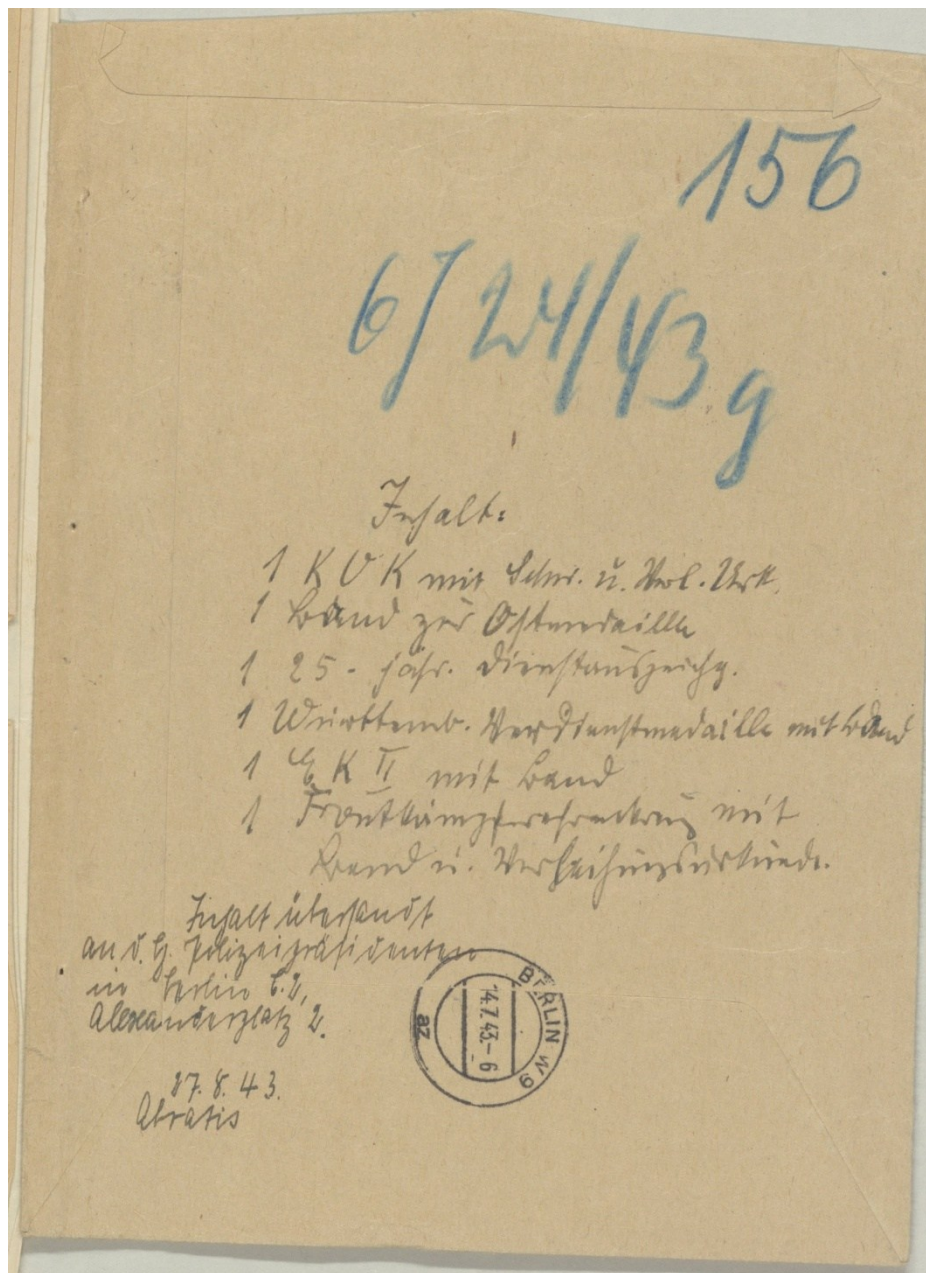 156
6J 24/43 g
Inhalt:
1 K V K mit Schw. u. Verl. Urk.
1 Band zur Ostmedaille
1 25-jähr. Dienstauszeichg.
1 Württemb. Verdienstmedaille mit Band
1 E K II mit Band
1 Frontkämpferehrenkreuz mit
Band u. Verleihungsurkunde.
Inhalt übersandt
an d. H. Polizeipräsidenten
in Berlin C. 2,
Alexanderplatz 2.
27.8.43.
BERLIN W 9
14.7.43.-6
az